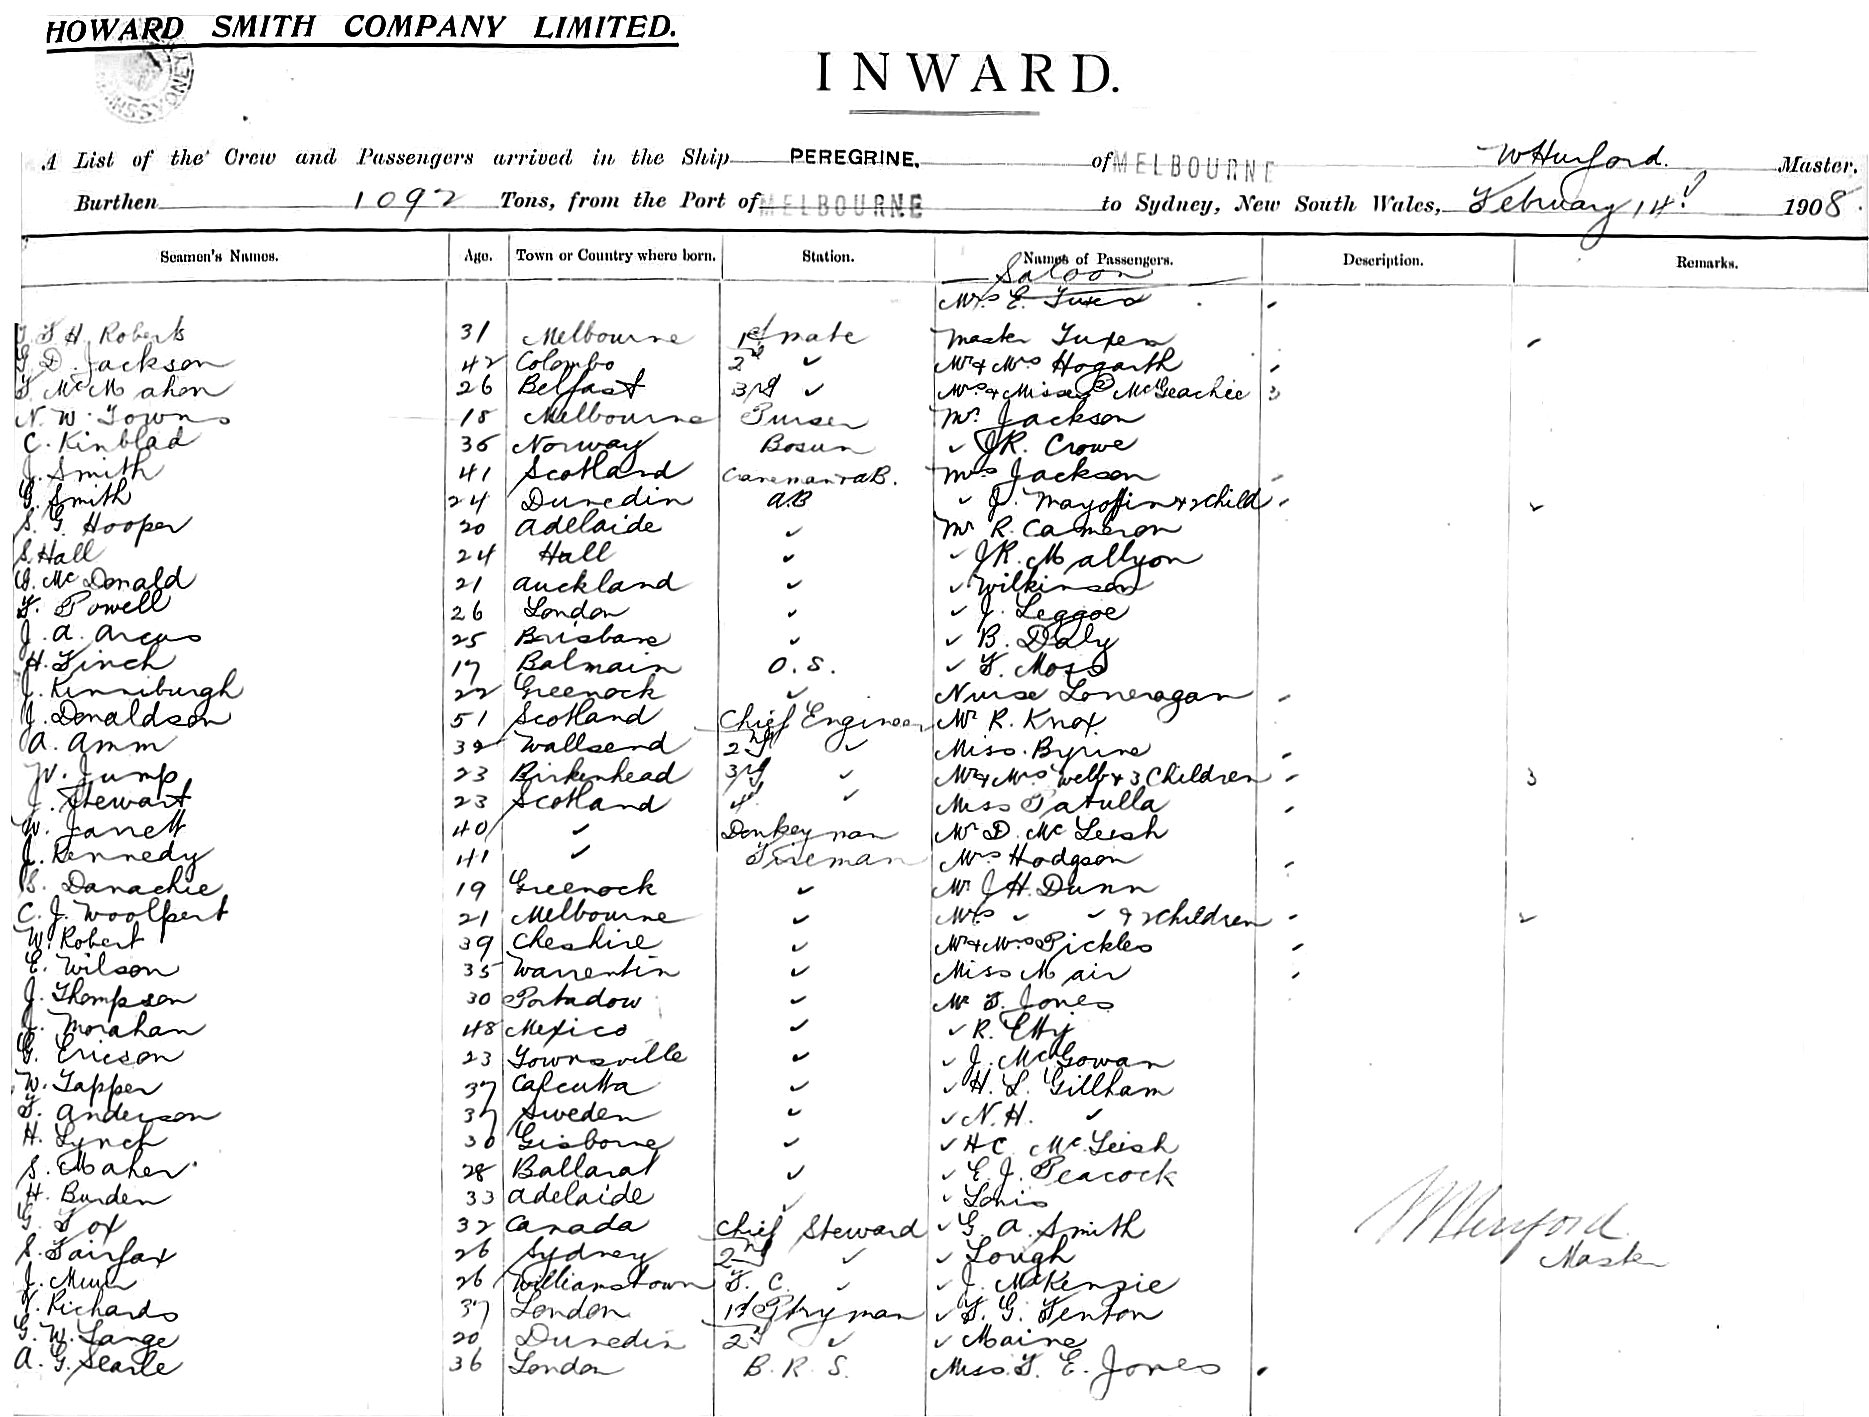 HOWARD SMITH COMPANY LIMITED.
INWARD.
A List of the Crew and Passengers arrived in the Ship PEREGRINE, of MELBOURNE W Hurford. Master.
Burthen 1092 Tons, from the Port of MELBOURNE to Sydney, New South Wales, February 14th 1908.
Seamen's Names. Age. Town or Country where born. Station. Names of Passengers. Description. Remarks.
Saloon
Mrs E. Tuxen
Roberts 31 Melbourne 1st mate Master Tuxen
G. D. Jackson 42 Colombo 2nd ✓ Mr & Mrs Hogarth
McMahon 26 Belfast 3rd ✓ Mrs & Misses McGeachie 3
N. W. Towns 18 Melbourne Purser Mr Jackson
C. Kinblad 36 Norway Bosun ✓ J R. Crowe
J. Smith 41 Scotland AB. Mrs Jackson
G. Smith 24 Dunedin AB ✓ J. & 2 Child ✓
S. G. Hooper 20 Adelaide ✓ Mr R. Cameron
S. Hall 24 Hull ✓ ✓ J R. Mallyon
McDonald 21 Auckland ✓ ✓ Wilkinson
F. Powell 26 London ✓ ✓ J. Leggoe
J. A. Arcus 25 Brisbane ✓ ✓ B. Daly
H. Finch 17 Balmain O. S. ✓ F. Moss
J. Kinniburgh 22 Greenock ✓ Nurse Loneragan
J. Donaldson 51 Scotland Chief Engineer Mr R. Knox
A. Amm 32 Wallsend 2nd ✓ Miss Byrne
W. Jump 23 Birkenhead 3rd ✓ Mr & Mrs Webb & 3 Children 3
J. Stewart 23 Scotland 4th ✓ Miss Patulla
W. Jarrett 40 ✓ Donkeyman Mr D. McLeish
J. Kennedy 41 ✓ Fireman Mrs Hodgson
S. Danachie 19 Greenock ✓ Mr J H. Dunn
C. J. Woolpert 21 Melbourne ✓ Mrs ✓ ✓ & 2 Children ✓
W. Robert 39 Cheshire ✓ Mr & Mrs Pickles
E. Wilson 35 Warrentin ✓ Miss Mair
J. Thompson 30 Portadow ✓ Mr F. Jones
J. Morahan 48 Mexico ✓ ✓ R. Etty
G. Ericson 23 Townsville ✓ ✓ J. McGowan
W. Tapper 37 Calcutta ✓ ✓ H. L. Gillham
F. Anderson 37 Sweden ✓ ✓ N. H. ✓
H. Lynch 30 Gisborne ✓ ✓ H C. McLeish
S. Maher 28 Ballarat ✓ ✓ E. J. Peacock
H. Burden 33 Adelaide ✓ ✓ Lonis
G. Fox 32 Canada Chief Steward ✓ G. A. Smith
S. Fairfax 26 Sydney 2nd ✓ ✓ Lough
J. Muir 26 Williamstown F. C. ✓ ✓ J. McKenzie
Richards 37 London 1st Ptryman ✓ F. G. Fenton
G. W. Lange 20 Dunedin 2nd ✓ ✓ Maine
A. G. Searle 36 London B. R. S. Miss F. E. Jones
W Hurford
Master